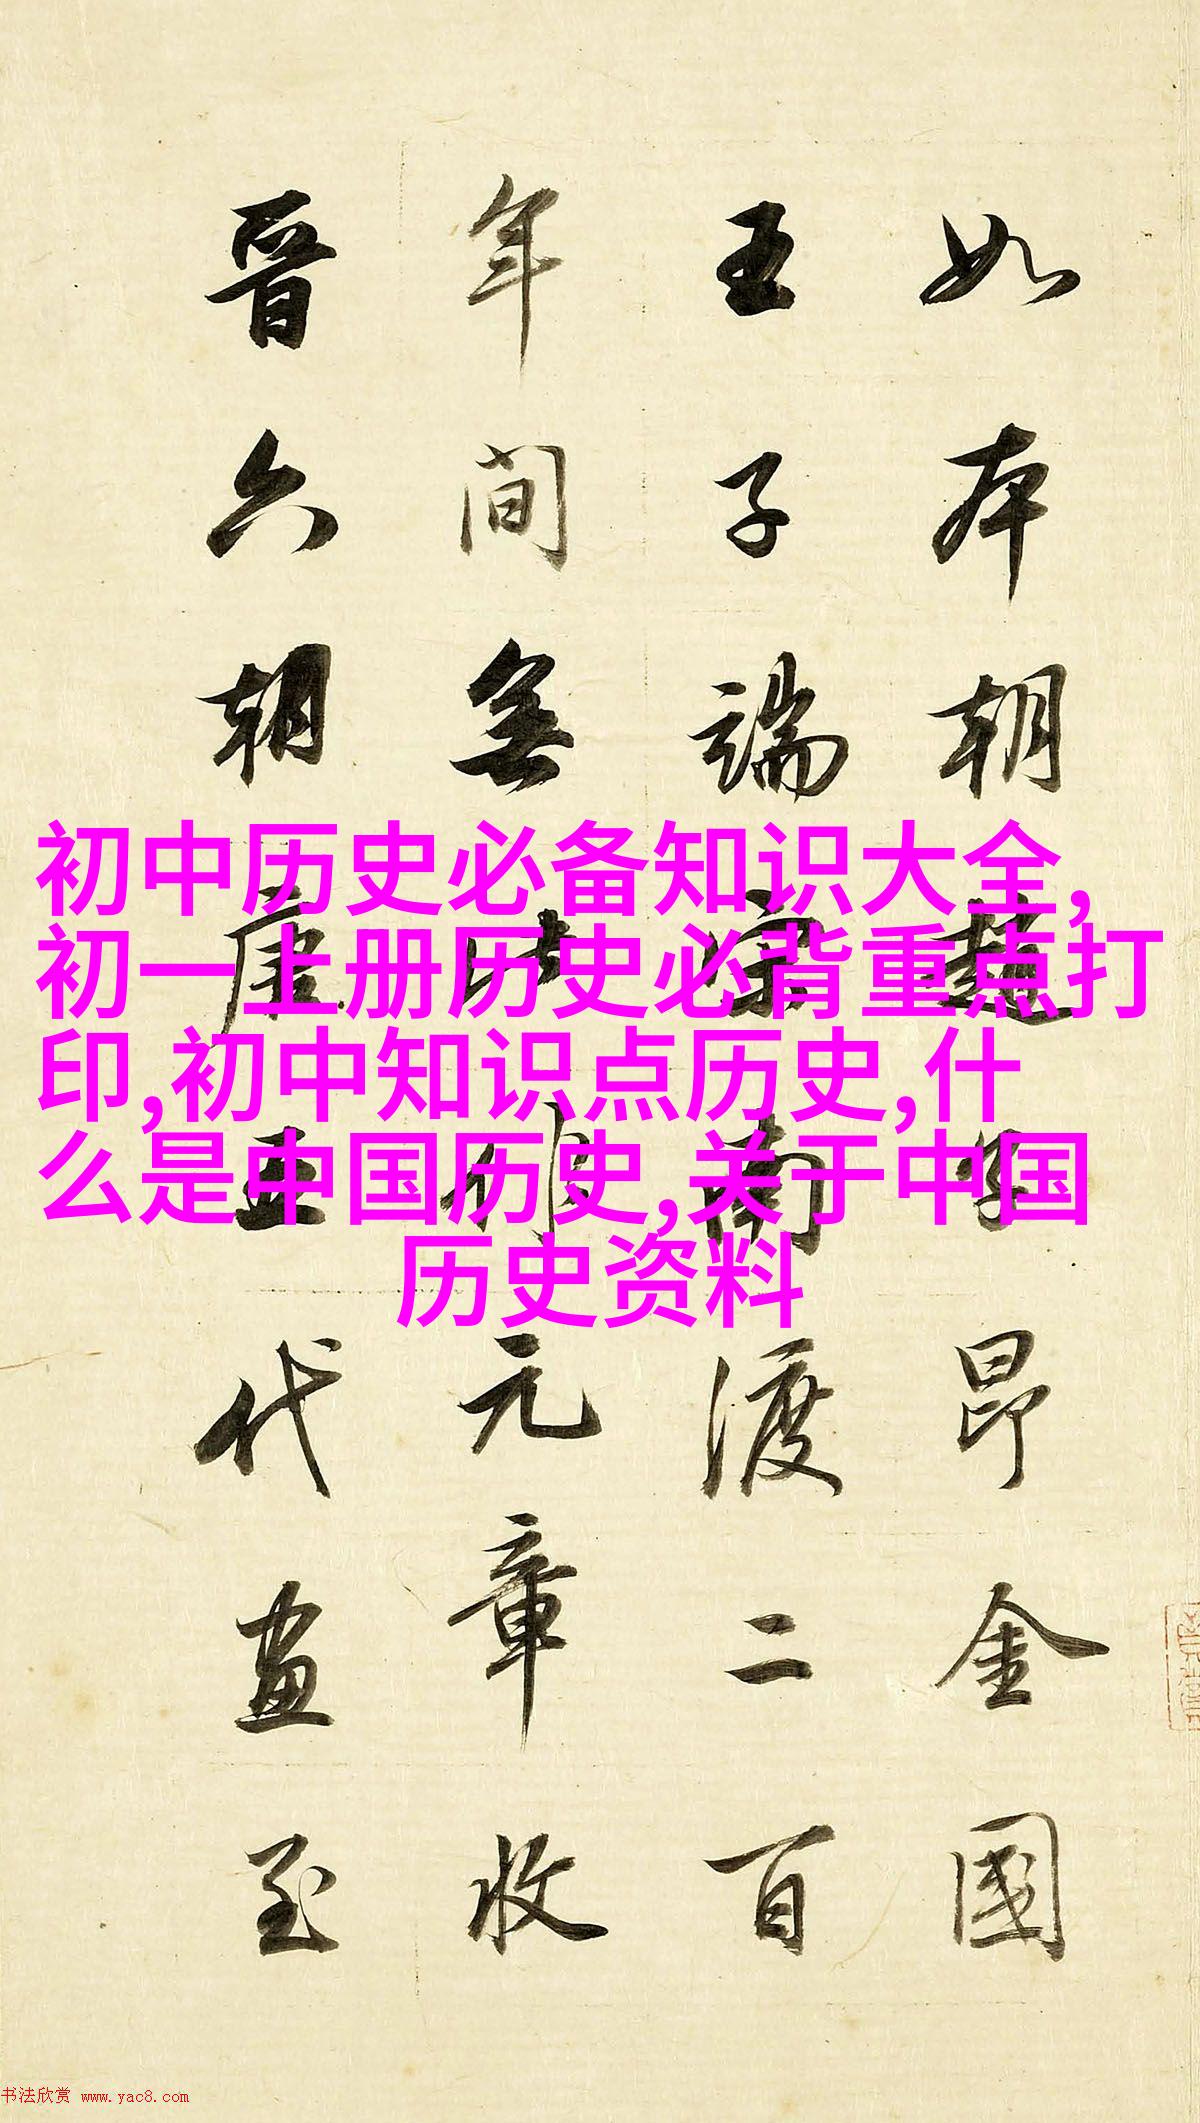 初中历史必备知识大全,
初一上册历史必背重点打
印,初中知识点历史,什
么是中国历史,关于中国
历史资料
如本朝趙子昂金國
王子端宋南渡二百
年間無此作元章收
晉六朝唐五代畫至
书法欣赏 www.yac8.com